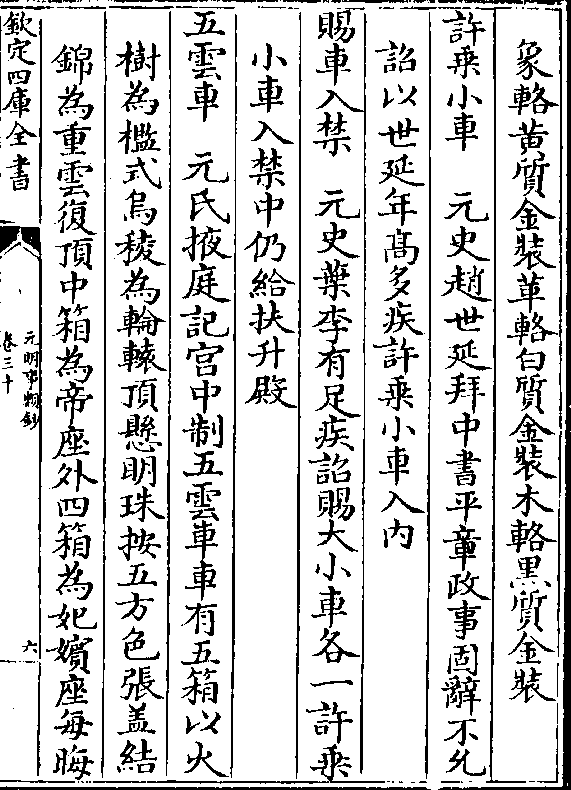 象輅黄質金裝革輅白質金裝木輅黒質金裝
許乗小車　元史趙世延拜中書平章政事固辭不允
詔以世延年髙多疾許乗小車入内
賜車入禁　元史葉李有足疾詔賜大小車各一許乗
小車入禁中仍給扶升殿
五雲車　元氏掖庭記宫中制五雲車車有五箱以火
樹為檻式烏稜為輪轅頂懸明珠按五方色張盖結
錦為重雲復頂中箱為帝座外四箱為妃嬪座每晦
欽定四庫全書
元明事類鈔
卷三十
六